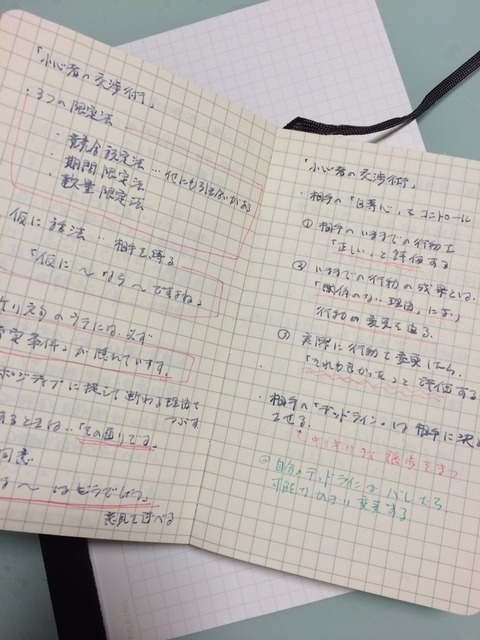 「小心者の交渉術」
・3つの限定法
・競合設定法…他にも引き合いがあり
・期間限定法
・数量限定法
仮に話法…相手を縛る
「仮に〜なら〜ですね」
のウラには必ず
条件」が隠れています。
ポジティブに捉えて断わる理由を
つぶす
するときは…「その通りです」
同意
〜はどうでしょう」
意見を述べる
「小心者の交渉術」
・相手の「自尊心」をコントロール
① 相手の今までの行動を
「正しい」と評価する
② 今までの行動の成果とは
「関係のない理由」により
行動の変更を迫る
③ 実際に行動を変更したら、
「それも良かった」と評価する
・相手の「デッドライン」は相手に決め
させる。
ぎりぎりまで譲歩をまつ
◎自分のデッドラインはバレたら
可能なかぎり変更する